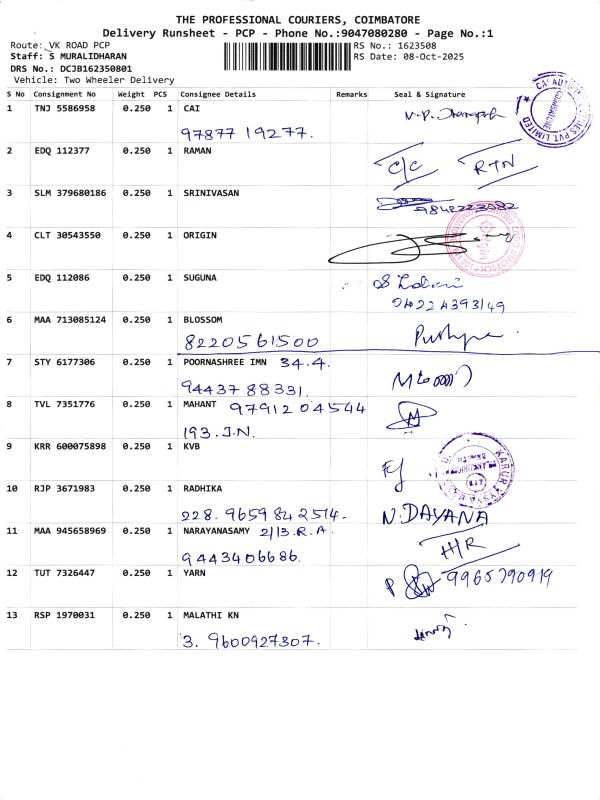 THE PROFESSIONAL COURIERS, COIMBATORE
Delivery Runsheet - PCP - Phone No.:9047080280 - Page No.:1
Route: VK ROAD PCP RS No.: 1623508
Staff: S MURALIDHARAN RS Date: 08-Oct-2025
DRS No.: DCJB162350801
Vehicle: Two Wheeler Delivery
S No Consignment No Weight PCS Consignee Details Remarks Seal & Signature
1 TNJ 5586958 0.250 1 CAI
97877 19277.
2 EDQ 112377 0.250 1 RAMAN
C/C RTN
3 SLM 379680186 0.250 1 SRINIVASAN
9842223082
4 CLT 30543550 0.250 1 ORIGIN
5 EDQ 112086 0.250 1 SUGUNA
04224393149
6 MAA 713085124 0.250 1 BLOSSOM
8220561500
7 STY 6177306 0.250 1 POORNASHREE IMN 34.4.
9443788331
8 TVL 7351776 0.250 1 MAHANT 9791204544
193.J.N.
9 KRR 600075898 0.250 1 KVB
KARUR VYSYA
10 RJP 3671983 0.250 1 RADHIKA
228. 9659842514. N.DAYANA
11 MAA 945658969 0.250 1 NARAYANASAMY 2/13.R.A.
9443406686. H/R
12 TUT 7326447 0.250 1 YARN 9965790919
13 RSP 1970031 0.250 1 MALATHI KN
3. 9600927307.